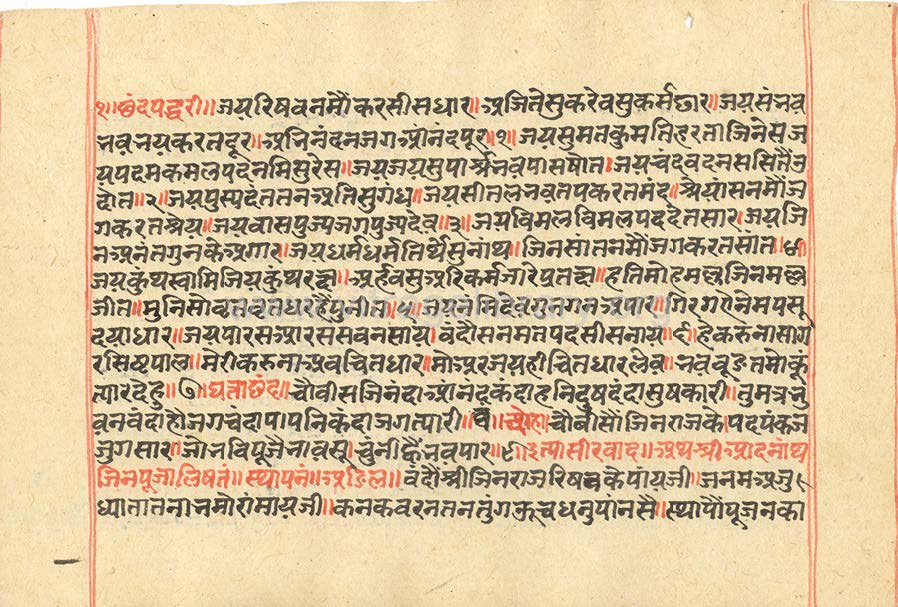 १॥छंदपद्धरी॥जयरिषवनमौंकरसीसधार॥अजितेसुकरेवसुकर्मछार॥जयसंनव
नवनयकरतदूर॥अनिनंदनजगआंनंदपूर॥१॥जयसुमतकुमतिहरताजिनेसज
यपदमकमलपदनमिसुरेस॥जयजयसुपार्श्वनवपासघात॥जयचंदवदनससितैंन
दोत॥२॥जयपुस्पदंततनअतिसुगंध॥जयसीतलनवतपकरतमंद॥श्रेयांसनमौंज
गकरतश्रेय॥जयवासपुज्यजगपुज्यदेव॥३॥जयविमलविमलपददेतसार॥जयजि
नअनंतगुनकेअगार॥जयधर्मधर्मतिर्थेसुनाथ॥जिनसांतनमौंजगकरतसांत॥४॥
जयकुंथस्वामिजियकुंथरद्दा॥अर्हवसुअरिकर्मजारिपुतद्दा॥हतिमोहमल्लजिनमल्ल
जीत॥मुनिसोवृतवृतधरहैपुनीत॥५॥जयनमिदेवगुनगनअपार॥गिरगरनेमपसु
दयाधार॥जयपारसआरससवनसाय॥वंदौसनमतपदसीसनाय॥६॥हेकरुनासाग
रसिष्टपाल॥मेरीकरुनाअवचितधार॥मोअरजयहीचितधारलेव॥नवबूडतमोकूं
त्यारदेहु॥७॥घताछंद॥चौवीसजिनंदाआंनंदकंदाहनिदुषदंदासुषकारी॥तुमत्रनु
वनवंदाहौजगचंदापापनिकंदाजगत्यारी॥८॥दोहा॥चौवीसौंजिनराजकेपदपंकज
जुगसार॥जोनविपूजैनावसुंहुंनीह्वैंनवपार॥९॥इत्यासीरवाद॥अथश्रीआदनाथ
जिनपूजालिषतं॥स्थापनं॥अडिल॥वंदौंश्रीजिनराजरिषवकेपांयजी॥जनमअजु
ध्यातातनानमोरांमायजी॥कनकवरनतनतुंगकऊचधनुपांनसै॥स्थापौंपूजनका